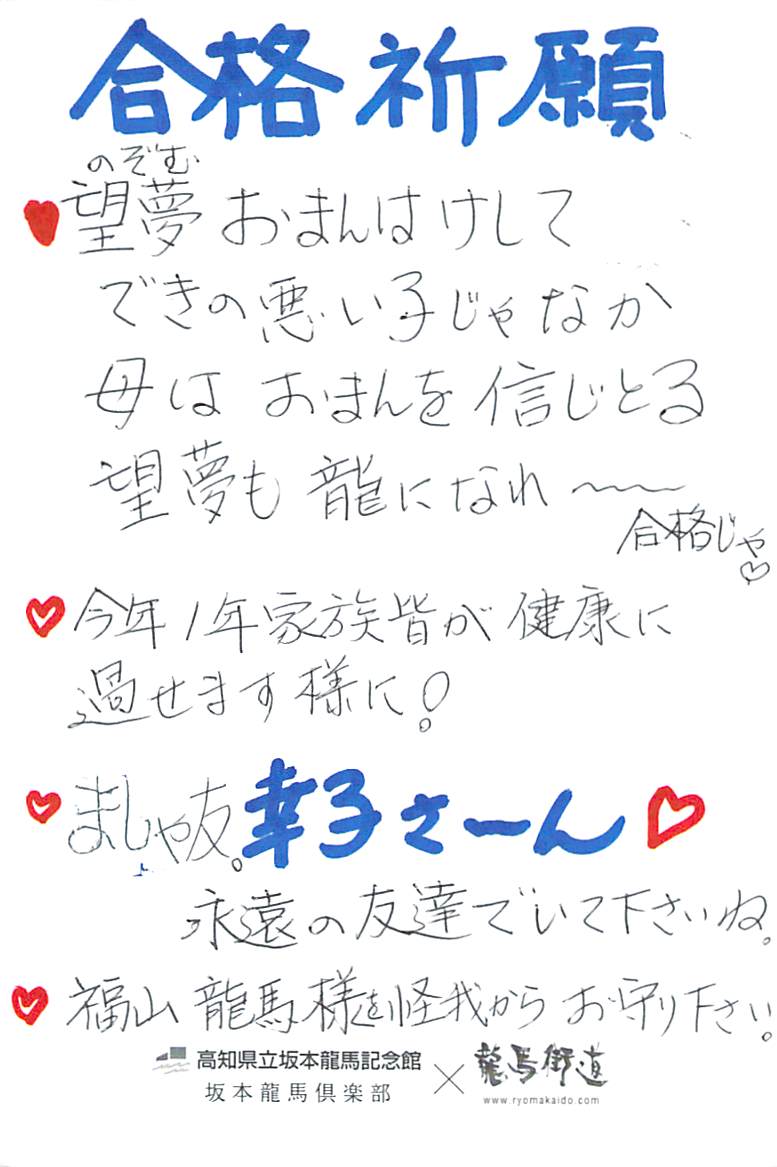 合格祈願
のぞむ
♥望夢 おまんは けして
できの悪い子じゃなか
母は おまんを 信じとる
望夢も 龍になれ〜〜
合格じゃ♡
♡今年1年家族皆が 健康に
過せます様に!
♡ましゃ友。幸子さーん♡
永遠の友達でいて下さいね。
♡福山 龍馬様を怪我から お守り下さい。
高知県立坂本龍馬記念館
坂本龍馬倶楽部
×
龍馬街道
www.ryomakaido.com